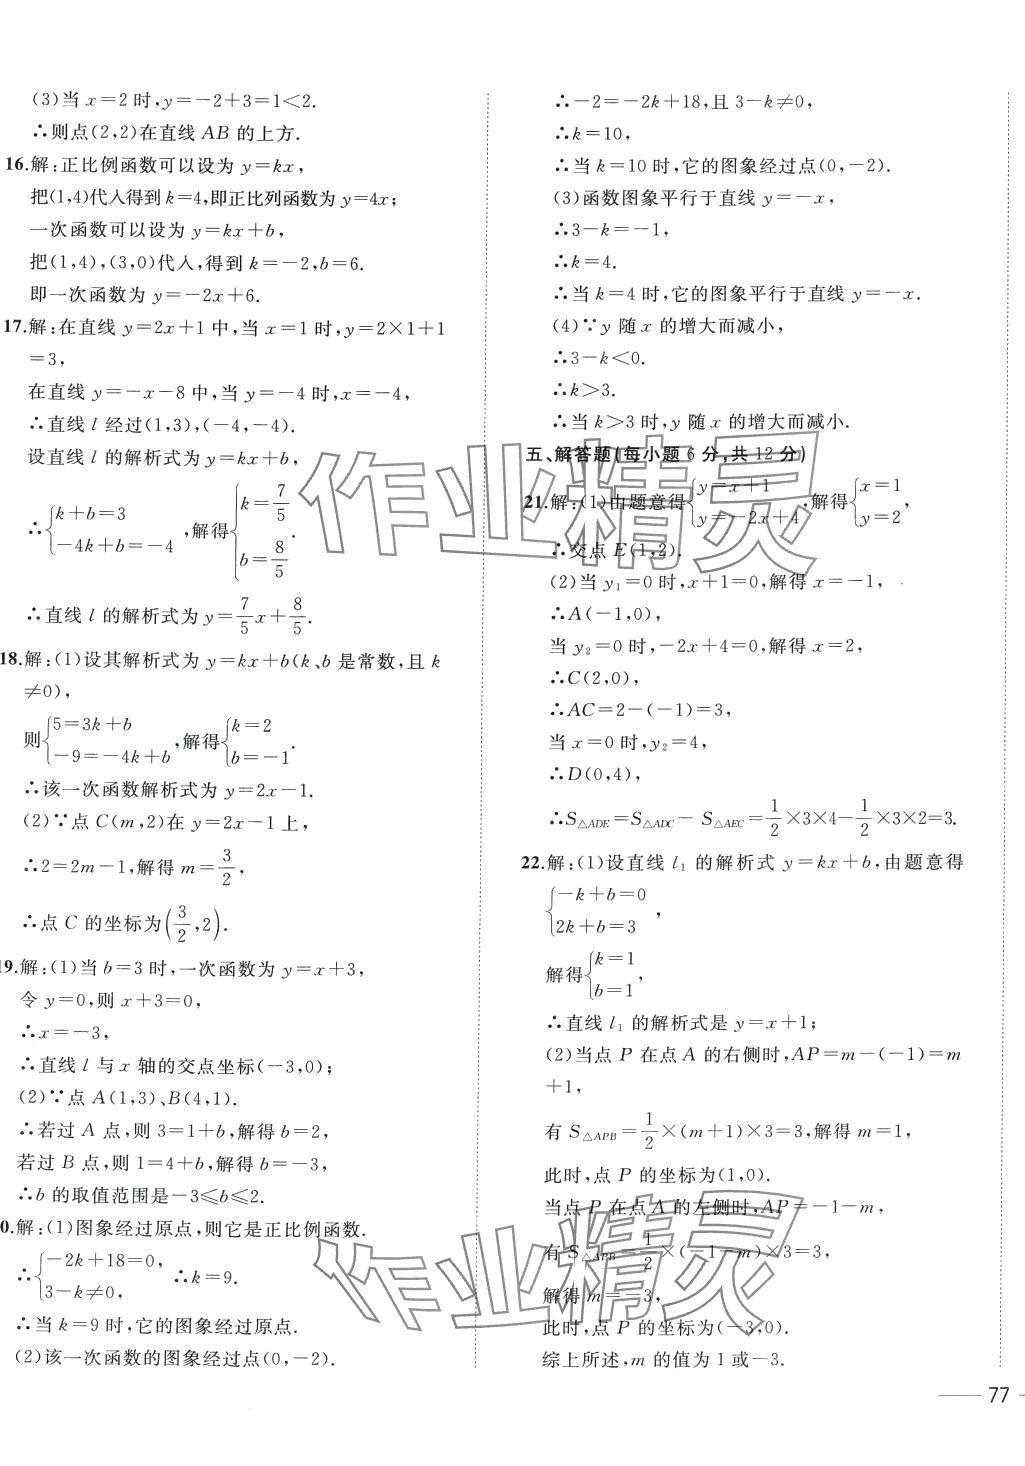 (3)当 x=2 时,y=-2+3=1<2.
∴则点(2,2)在直线 AB 的上方.
16.解:正比例函数可以设为 y=kx,
把(1,4)代入得到 k=4,即正比列函数为 y=4x;
一次函数可以设为 y=kx+b,
把(1,4),(3,0)代入,得到 k=-2,b=6.
即一次函数为 y=-2x+6.
17.解:在直线 y=2x+1 中,当 x=1 时,y=2×1+1
=3,
在直线 y=-x-8 中,当 y=-4 时,x=-4,
∴直线 l 经过(1,3),(-4,-4).
设直线 l 的解析式为 y=kx+b,
∴{k+b=3 -4k+b=-4 ,解得{k=7/5 b=8/5 .
∴直线 l 的解析式为 y=7/5x+8/5.
18.解:(1)设其解析式为 y=kx+b(k、b 是常数,且 k
≠0),
则{5=3k+b -9=-4k+b ,解得{k=2 b=-1 .
∴该一次函数解析式为 y=2x-1.
(2)∵点 C(m,2)在 y=2x-1 上,
∴2=2m-1,解得 m=3/2,
∴点 C 的坐标为(3/2,2).
19.解:(1)当 b=3 时,一次函数为 y=x+3,
令 y=0,则 x+3=0,
∴x=-3,
∴直线 l 与 x 轴的交点坐标(-3,0);
(2)∵点 A(1,3)、B(4,1).
∴若过 A 点,则 3=1+b,解得 b=2,
若过 B 点,则 1=4+b,解得 b=-3,
∴b 的取值范围是-3≤b≤2.
0.解:(1)图象经过原点,则它是正比例函数.
∴{-2k+18=0, 3-k≠0, ∴k=9.
∴当 k=9 时,它的图象经过原点.
(2)该一次函数的图象经过点(0,-2).
∴-2=-2k+18,且 3-k≠0,
∴k=10,
∴当 k=10 时,它的图象经过点(0,-2).
(3)函数图象平行于直线 y=-x,
∴3-k=-1,
∴k=4.
∴当 k=4 时,它的图象平行于直线 y=-x.
(4)∵y 随 x 的增大而减小,
∴3-k<0.
∴k>3.
∴当 k>3 时,y 随 x 的增大而减小.
五、解答题(每小题 6 分,共 12 分)
21.解:(1)由题意得{y=x+1 y=-2x+4 ,解得{x=1 y=2 ,
∴交点 E(1,2).
(2)当 y₁=0 时,x+1=0,解得 x=-1,
∴A(-1,0),
当 y₂=0 时,-2x+4=0,解得 x=2,
∴C(2,0),
∴AC=2-(-1)=3,
当 x=0 时,y₂=4,
∴D(0,4),
∴S△ADE=S△ADC- S△AEC=1/2×3×4-1/2×3×2=3.
22.解:(1)设直线 l₁ 的解析式 y=kx+b,由题意得
{-k+b=0 2k+b=3 ,
解得{k=1 b=1 ,
∴直线 l₁ 的解析式是 y=x+1;
(2)当点 P 在点 A 的右侧时,AP=m-(-1)=m
+1,
有 S△APB=1/2×(m+1)×3=3,解得 m=1,
此时,点 P 的坐标为(1,0).
当点 P 在点 A 的左侧时,AP=-1-m,
有 S△APB=1/2×(-1-m)×3=3,
解得 m=-3,
此时,点 P 的坐标为(-3,0).
综上所述,m 的值为 1 或-3.
77
作业精灵
作业精灵